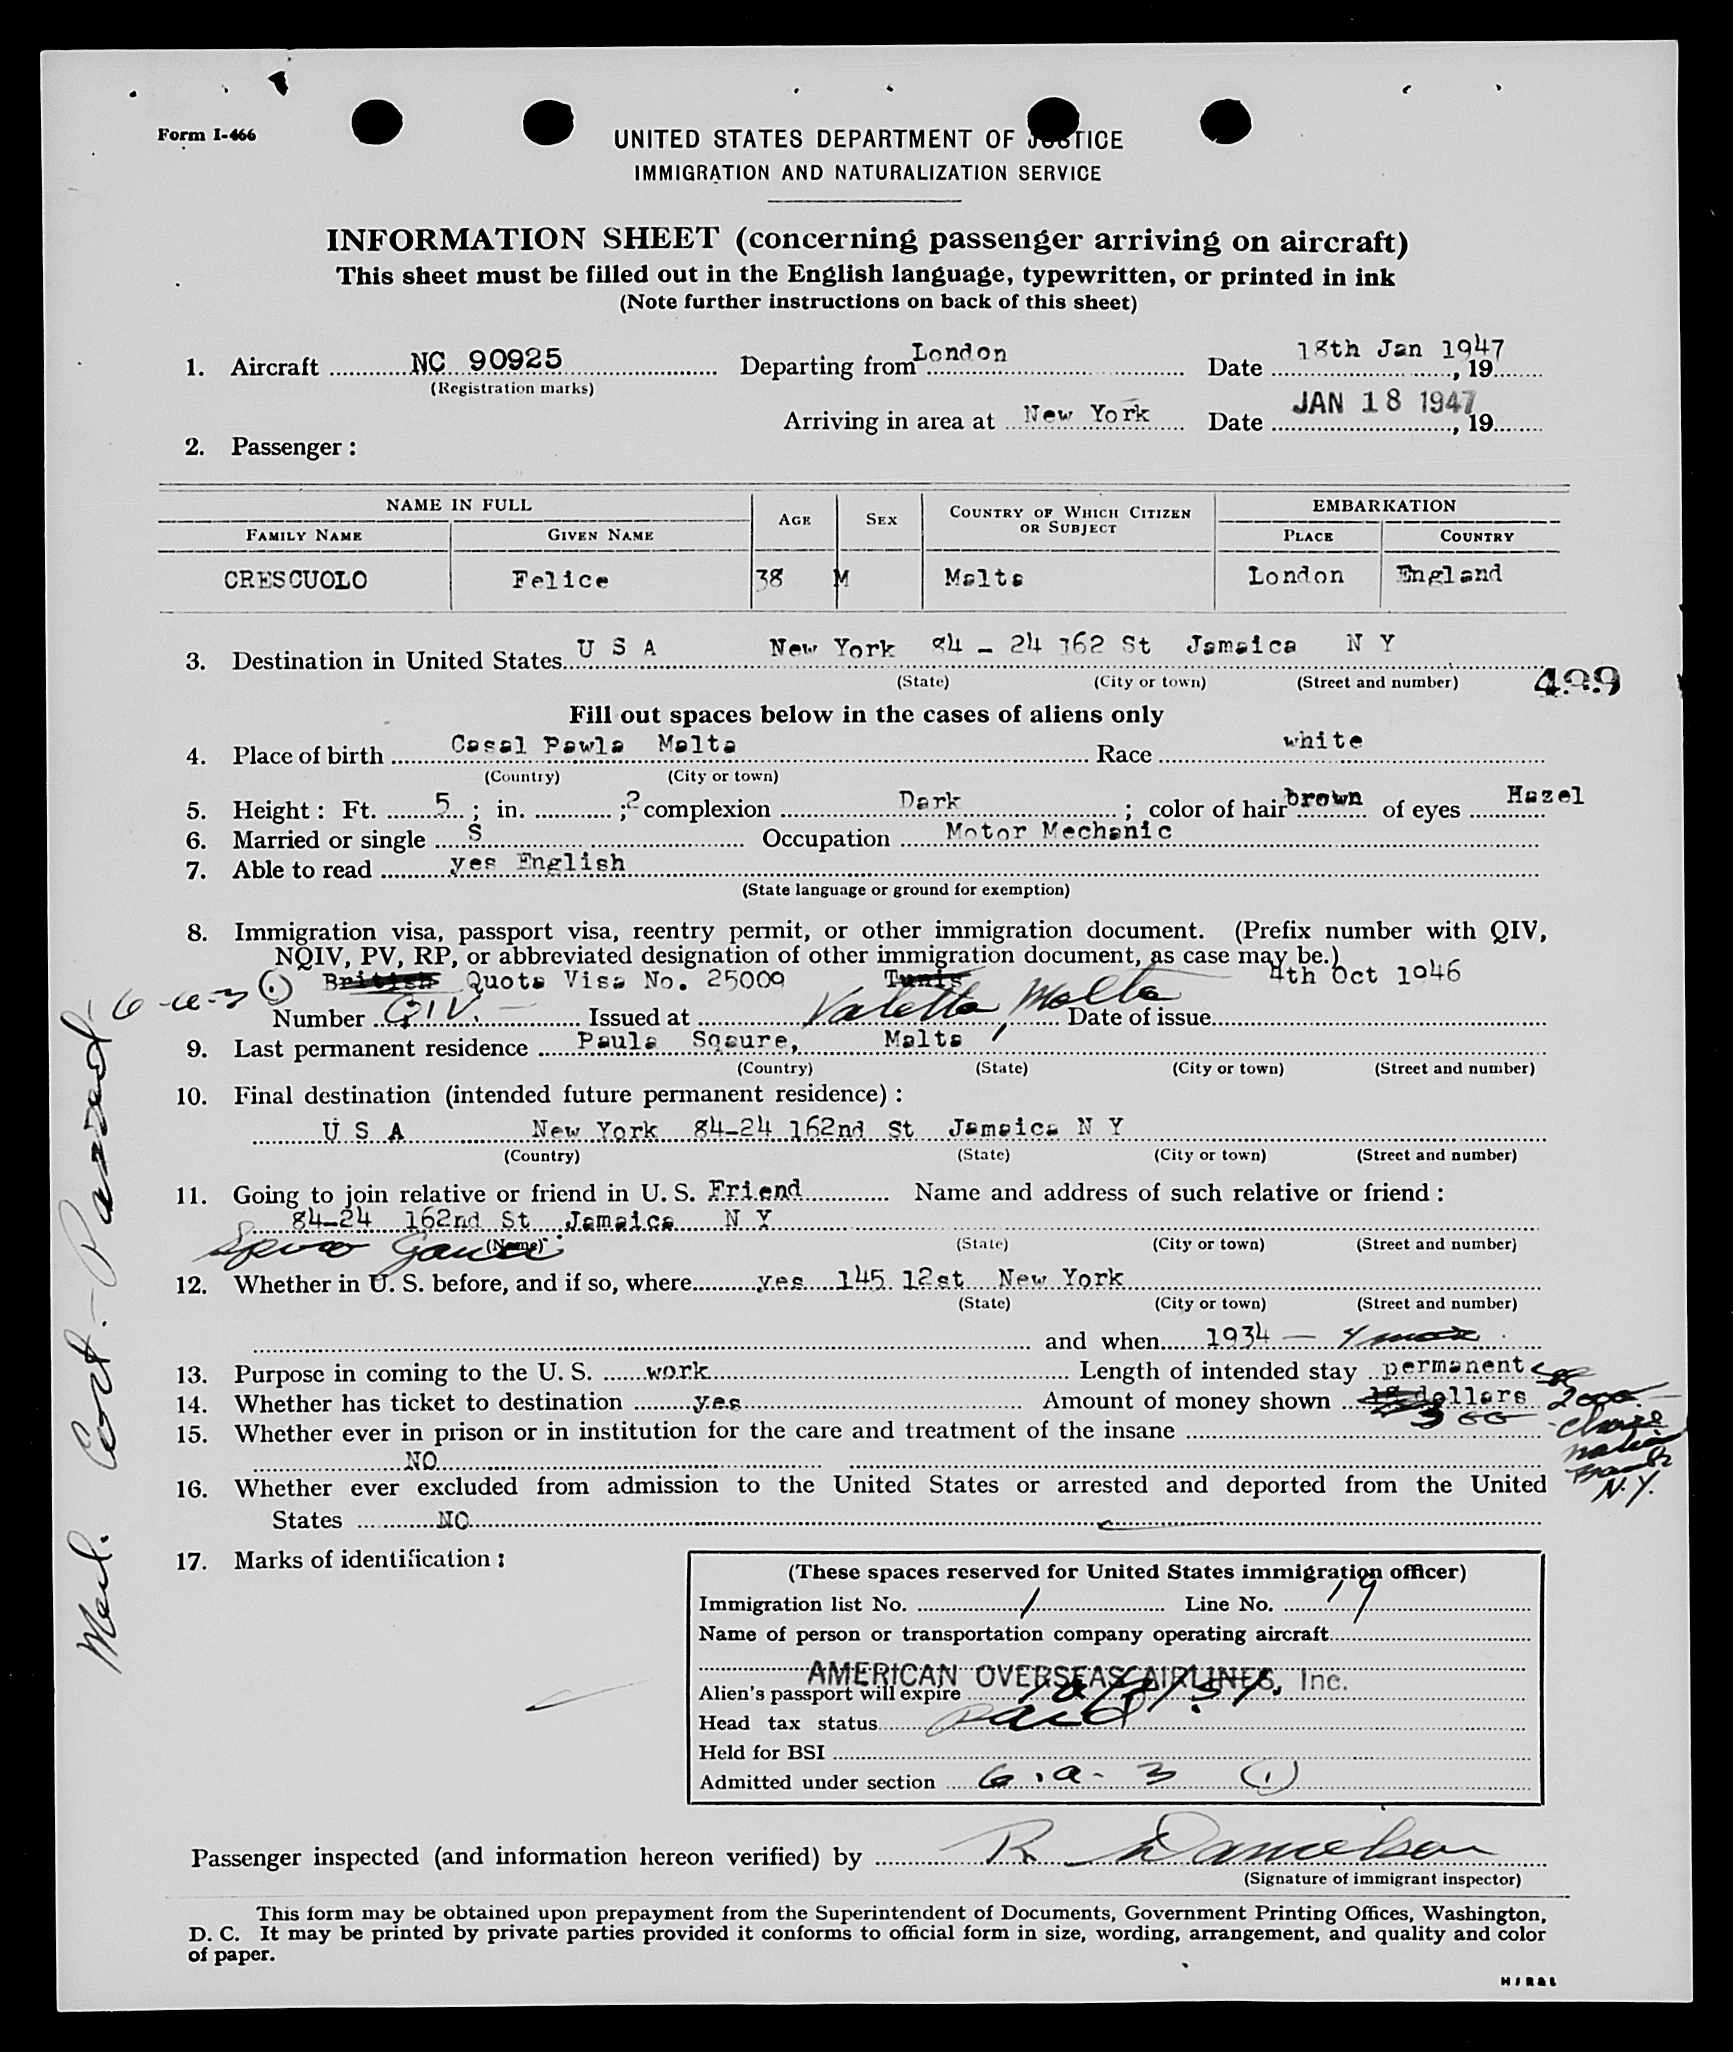 Form I-466
UNITED STATES DEPARTMENT OF JUSTICE
IMMIGRATION AND NATURALIZATION SERVICE
INFORMATION SHEET (concerning passenger arriving on aircraft)
This sheet must be filled out in the English language, typewritten, or printed in ink
(Note further instructions on back of this sheet)
1. Aircraft NC 90925 Departing from London Date 18th Jan 1947, 19
(Registration marks)
Arriving in area at New York Date JAN 18 1947, 19
2. Passenger:
NAME IN FULL AGE SEX COUNTRY OF WHICH CITIZEN OR SUBJECT EMBARKATION
FAMILY NAME GIVEN NAME PLACE COUNTRY
CRESCUOLO Felice 38 M Malta London England
3. Destination in United States U S A New York 84 - 24 162 St Jamaica N Y
(State) (City or town) (Street and number) 499
Fill out spaces below in the cases of aliens only
4. Place of birth Casal Pawla Malta Race white
(Country) (City or town)
5. Height: Ft. 5; in. ;2 complexion Dark; color of hair brown of eyes Hazel
6. Married or single S Occupation Motor Mechanic
7. Able to read yes English
(State language or ground for exemption)
8. Immigration visa, passport visa, reentry permit, or other immigration document. (Prefix number with QIV,
NQIV, PV, RP, or abbreviated designation of other immigration document, as case may be.)
6-a-3 (1) British Quota Visa No. 25009 Tunis 4th Oct 1946
Number QIV. Issued at Valetta Malta Date of issue
9. Last permanent residence Paula Sqaure, Malta
(Country) (State) (City or town) (Street and number)
10. Final destination (intended future permanent residence):
U S A New York 84-24 162nd St Jamaica N Y
(Country) (State) (City or town) (Street and number)
11. Going to join relative or friend in U. S. Friend Name and address of such relative or friend:
84-24 162nd St Jamaica N Y
(Name) (State) (City or town) (Street and number)
12. Whether in U. S. before, and if so, where yes 145 12st New York
(State) (City or town) (Street and number)
and when 1934 - 4 mos
13. Purpose in coming to the U. S. work Length of intended stay permanent
14. Whether has ticket to destination yes Amount of money shown dollars 2000
300
15. Whether ever in prison or in institution for the care and treatment of the insane
NO
Chase
Bank
N.Y.
16. Whether ever excluded from admission to the United States or arrested and deported from the United
States NO
17. Marks of identification:
(These spaces reserved for United States immigration officer)
Immigration list No. 1 Line No. 19
Name of person or transportation company operating aircraft
AMERICAN OVERSEAS AIRLINES, Inc.
Alien's passport will expire
Head tax status Paid
Held for BSI
Admitted under section 6.a-3 (1)
Passenger inspected (and information hereon verified) by R Danielson
(Signature of immigrant inspector)
This form may be obtained upon prepayment from the Superintendent of Documents, Government Printing Offices, Washington,
D. C. It may be printed by private parties provided it conforms to official form in size, wording, arrangement, and quality and color
of paper.
Med. Cert. - Passed